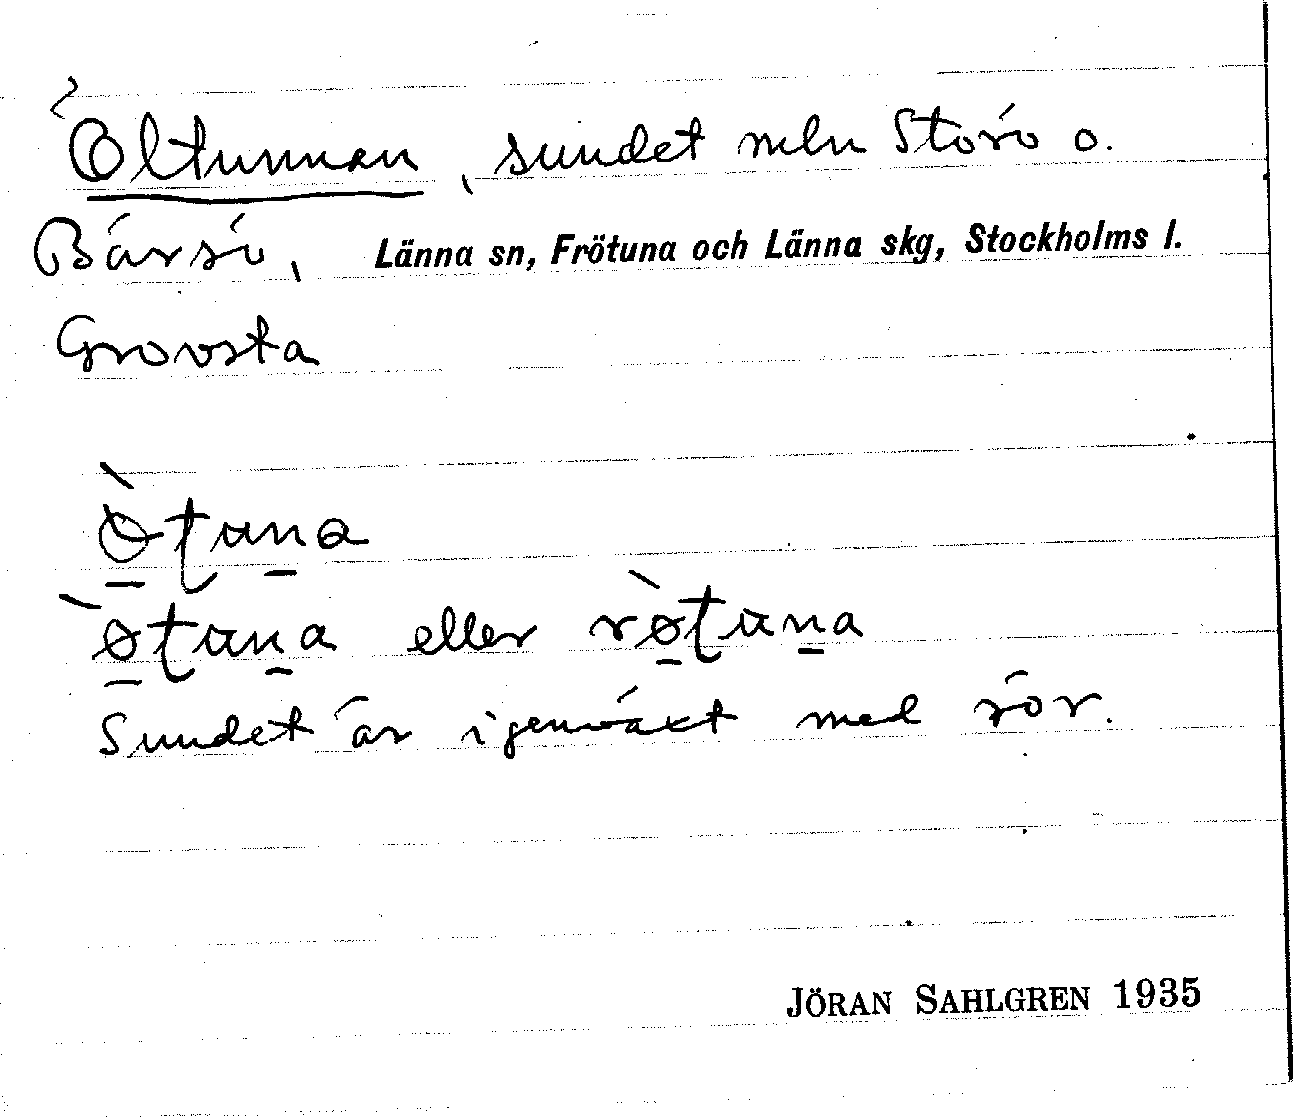 Öltunnan, sundet mln Storö o.
Bärsö, Länna sn, Frötuna och Länna skg, Stockholms l.
Grovsta
ø̀ʈuna
ø̀ʈuna eller rø̀ʈuna
Sundet är igenväxt med rör.
JÖRAN SAHLGREN 1935